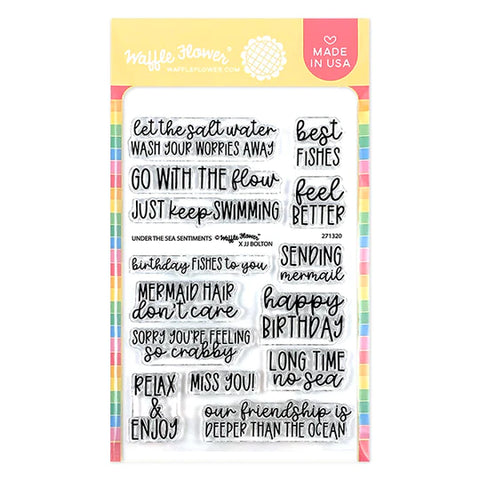 Waffle Flower
WAFFLEFLOWER.COM
MADE
IN USA
let the salt water
WASH YOUR WORRIES AWAY
best
FISHES
GO WITH THE flow
feel
BETTER
JUST keep SWIMMING
UNDER THE SEA SENTIMENTS © Waffle Flower X JJ BOLTON 271320
birthday FISHES to you
SENDING
mermail
MERMAID HAIR
don't care
happy
BIRTHDAY
SORRY YOU'RE FEELING
so crabby
LONG TIME
no sea
RELAX
&
ENJOY
MISS YOU!
our friendship is
DEEPER THAN THE OCEAN